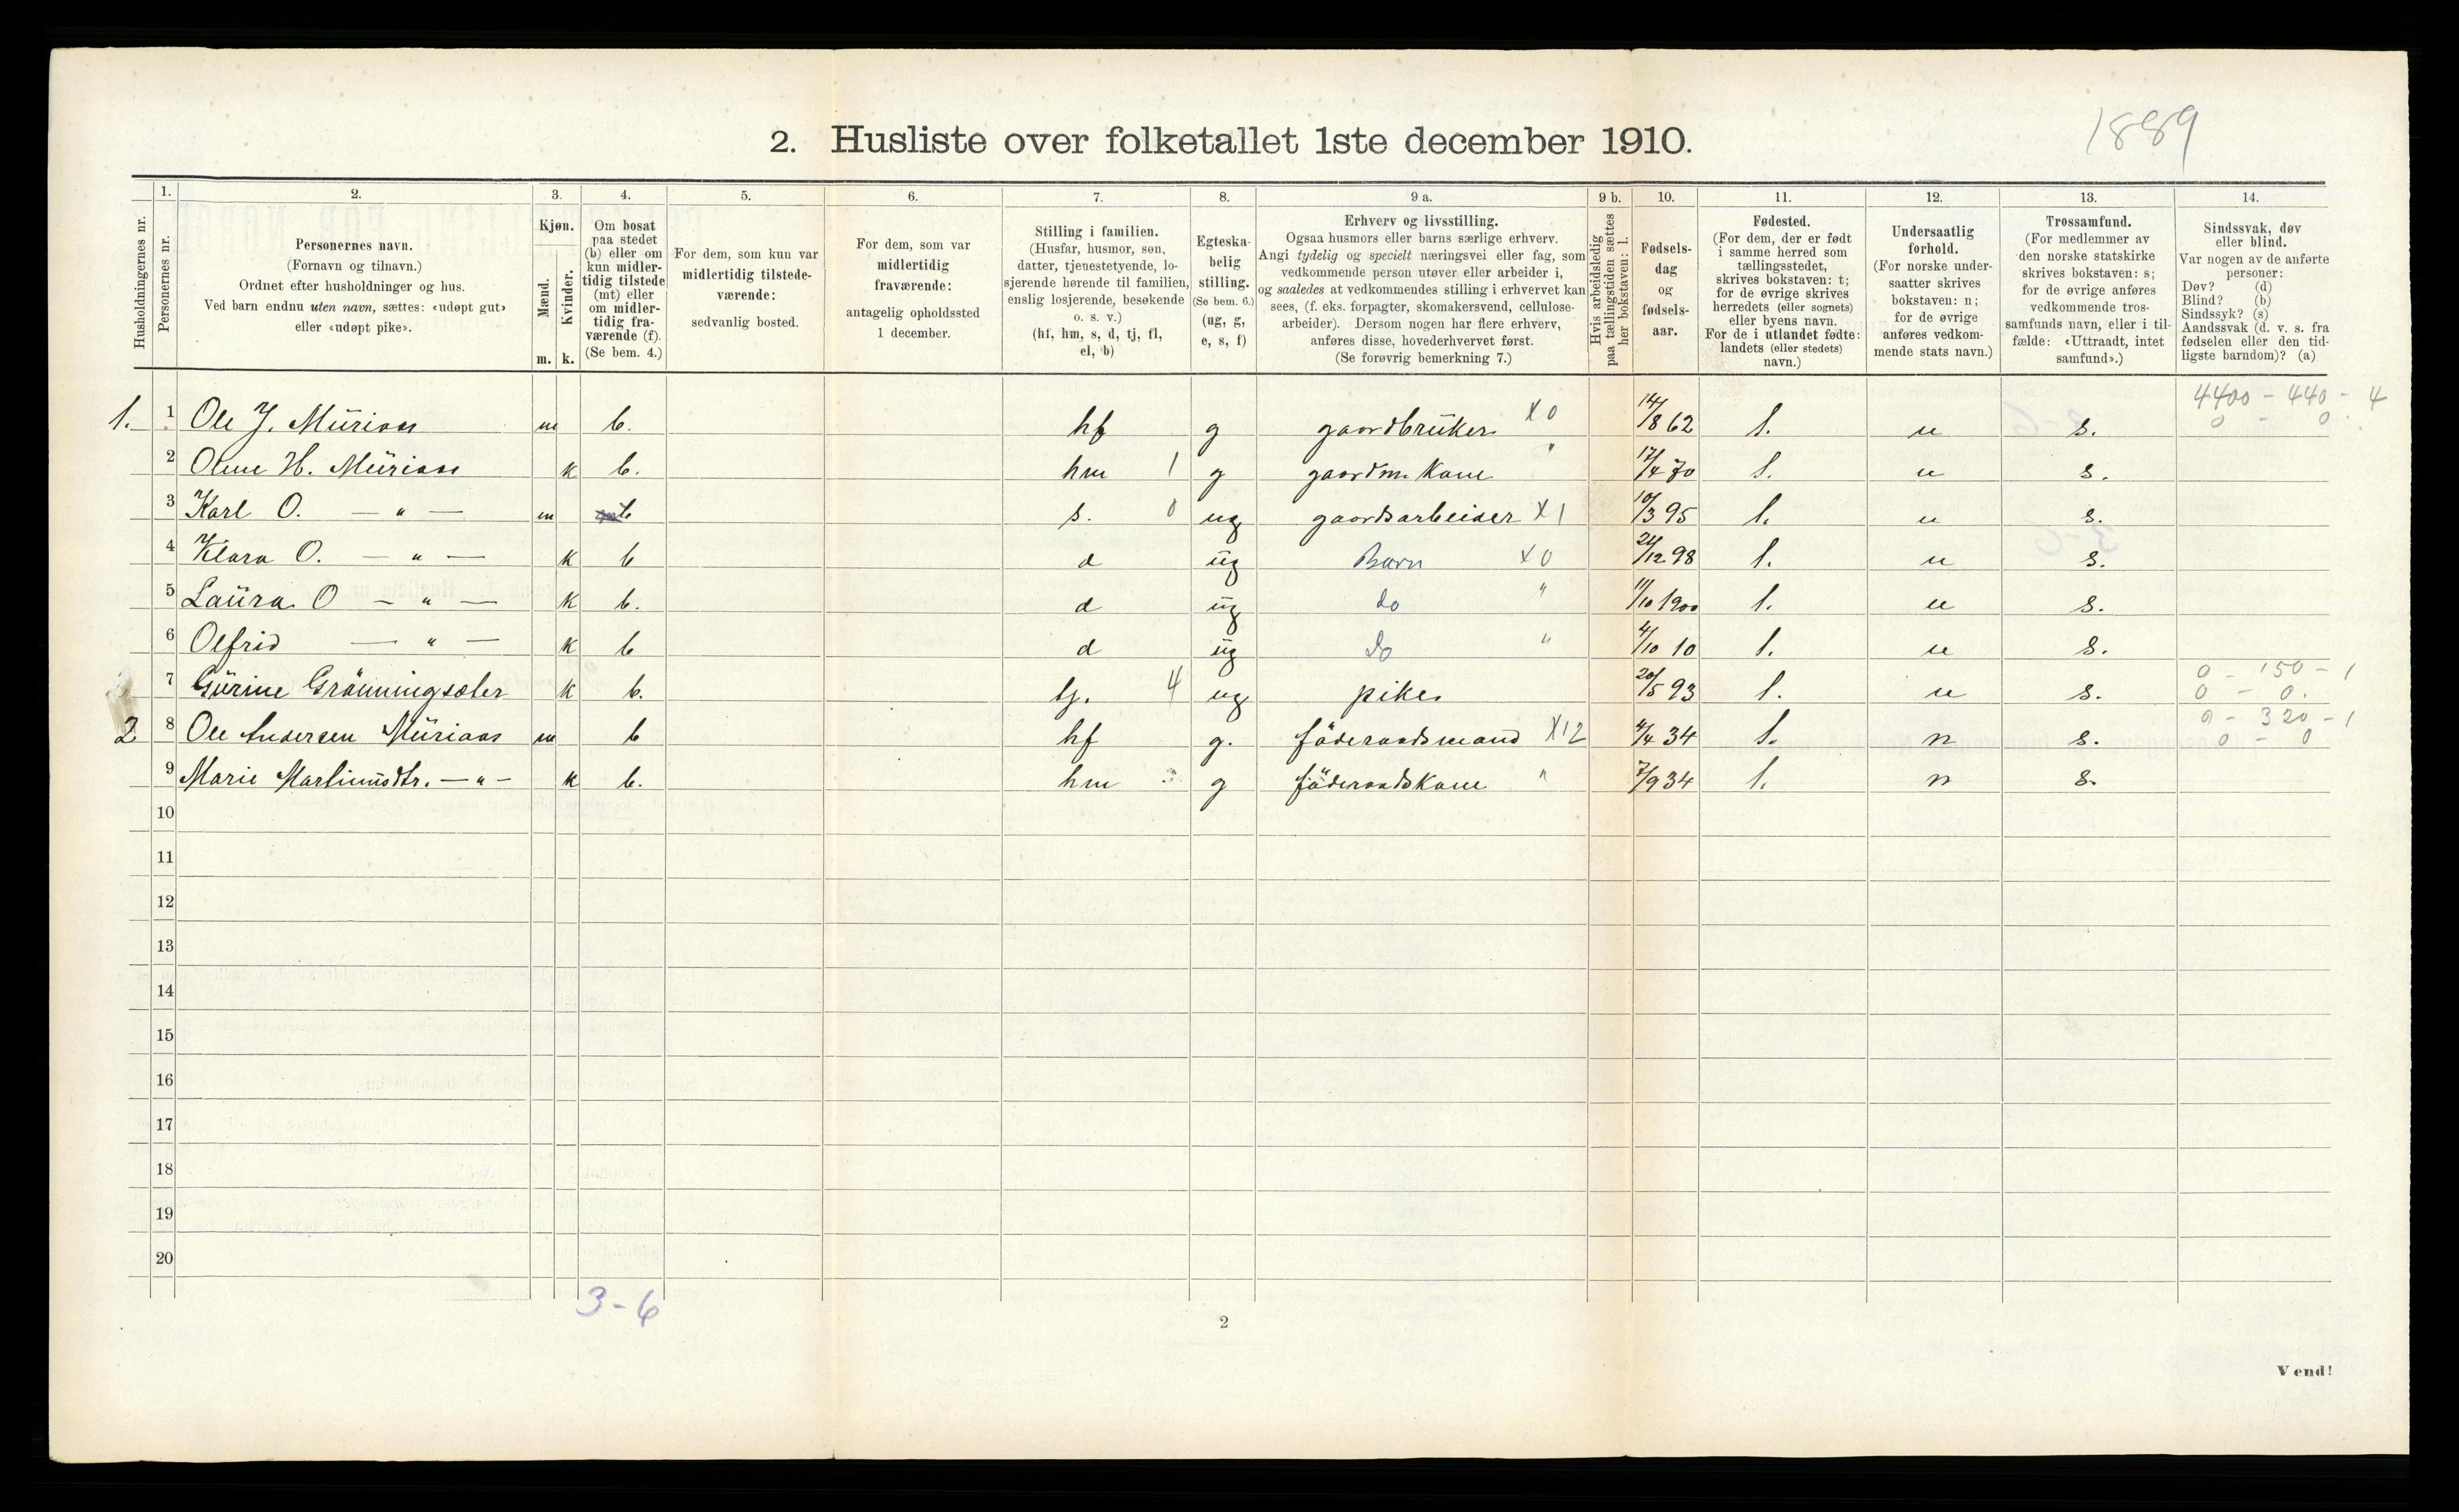 1889
2. Husliste over folketallet 1ste december 1910.
Husholdningernes nr.
1. Personernes nr.
2. Personernes navn. (Fornavn og tilnavn.) Ordnet efter husholdninger og hus. Ved barn endnu uten navn, sættes: «udøpt gut» eller «udøpt pike».
3. Kjøn. Mænd. m. Kvinder. k.
4. Om bosat paa stedet (b) eller om kun midlertidig tilstede (mt) eller om midlertidig fraværende (f). (Se bem. 4.)
5. For dem, som kun var midlertidig tilstedeværende: sedvanlig bosted.
6. For dem, som var midlertidig fraværende: antagelig opholdssted 1 december.
7. Stilling i familien. (Husfar, husmor, søn, datter, tjenestetyende, losjerende hørende til familien, enslig losjerende, besøkende o. s. v.) (hf, hm, s, d, tj, fl, el, b)
8. Egteskabelig stilling. (Se bem. 6.) (ug, g, e, s, f)
9 a. Erhverv og livsstilling. Ogsaa husmors eller barns særlige erhverv. Angi tydelig og specielt næringsvei eller fag, som vedkommende person utøver eller arbeider i, og saaledes at vedkommendes stilling i erhvervet kan sees, (f. eks. forpagter, skomakersvend, cellulosearbeider). Dersom nogen har flere erhverv, anføres disse, hovederhvervet først. (Se forøvrig bemerkning 7.)
9 b. Hvis arbeidsledig paa tællingstiden sættes her bokstaven: l.
10. Fødselsdag og fødselsaar.
11. Fødested. (For dem, der er født i samme herred som tællingsstedet, skrives bokstaven: t; for de øvrige skrives herredets (eller sognets) eller byens navn. For de i utlandet fødte: landets (eller stedets) navn.)
12. Undersaatlig forhold. (For norske undersaatter skrives bokstaven: n; for de øvrige anføres vedkommende stats navn.)
13. Trossamfund. (For medlemmer av den norske statskirke skrives bokstaven: s; for de øvrige anføres vedkommende trossamfunds navn, eller i tilfælde: «Uttraadt, intet samfund».)
14. Sindssvak, døv eller blind. Var nogen av de anførte personer: Døv? (d) Blind? (b) Sindssyk? (s) Aandssvak (d. v. s. fra fødselen eller den tidligste barndom)? (a)
4400 - 440 - 4
1. 1 Ole J. Muriaas m b. hf g gaardbruker X0 14/8 62 t. n s. 0 - 0
2 Oline H. Muriaas k b. hm 1 g gaardm. Kone " 17/4 70 t. n s.
3 Karl O. — " — m b s. 0 ug gaardsarbeider X1 10/3 95 t. n s.
4 Klara O. — " — k b d ug Barn X0 24/12 98 t. n s.
5 Laura O — " — k b. d ug do " 11/10 1900 t. n s.
6 Olfrid — " — k b d ug do " 4/10 10 t. n s.
0 - 150 - 1
7 Gurine Grönningsæter k b. tj. 4 ug pike 20/5 93 t. n s. 0 - 0.
0 - 320 - 1
2 8 Ole Andersen Muriaas m b hf g. föderaadsmand X12 4/4 34 t. n s. 0 - 0
9 Marie Martinusdtr. — " — k b. hm g föderaadskone " 7/9 34 t. n s.
10
11
12
13
14
15
16
17
18
19
20
3 - 6
2
Vend!